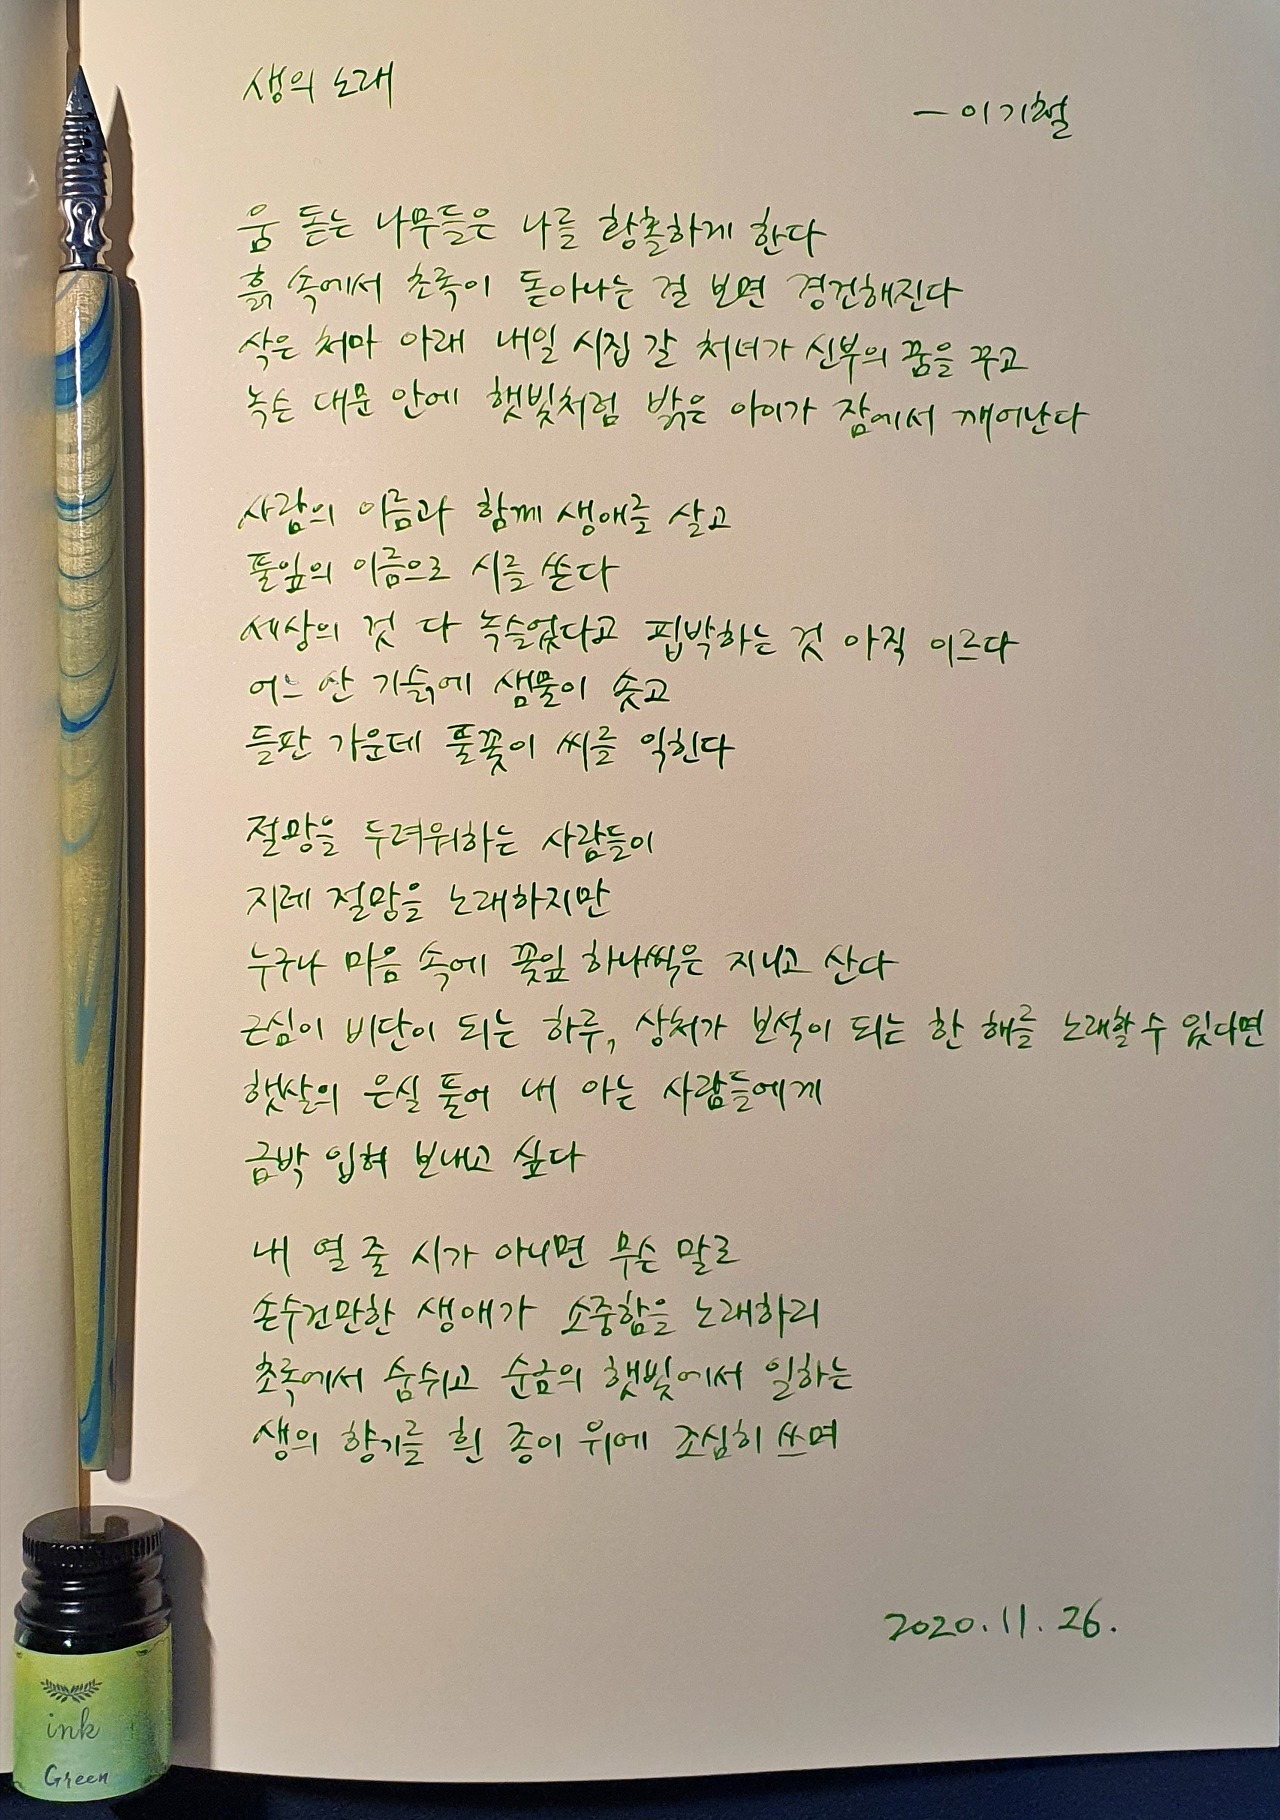 생의 노래
— 이기철
움 돋는 나무들은 나를 황홀하게 한다
흙 속에서 초록이 돋아나는 걸 보면 경건해진다
삭은 처마 아래 내일 시집 갈 처녀가 신부의 꿈을 꾸고
녹슨 대문 안에 햇빛처럼 밝은 아이가 잠에서 깨어난다
사람의 이름과 함께 생애를 살고
풀잎의 이름으로 시를 쓴다
세상의 것 다 녹슬었다고 핍박하는 것 아직 이르다
어느 산 기슭에 샘물이 솟고
들판 가운데 풀꽃이 씨를 익힌다
절망을 두려워하는 사람들이
지레 절망을 노래하지만
누구나 마음 속에 꽃잎 하나씩은 지니고 산다
근심이 비단이 되는 하루, 상처가 보석이 되는 한 해를 노래할 수 있다면
햇살의 은실 풀어 내 아는 사람들에게
금박 입혀 보내고 싶다
내 열 줄 시가 아니면 무슨 말로
손수건만한 생애가 소중함을 노래하리
초록에서 숨쉬고 순금의 햇빛에서 일하는
생의 향기를 흰 종이 위에 조심히 쓰며
2020.11.26.
ink
Green